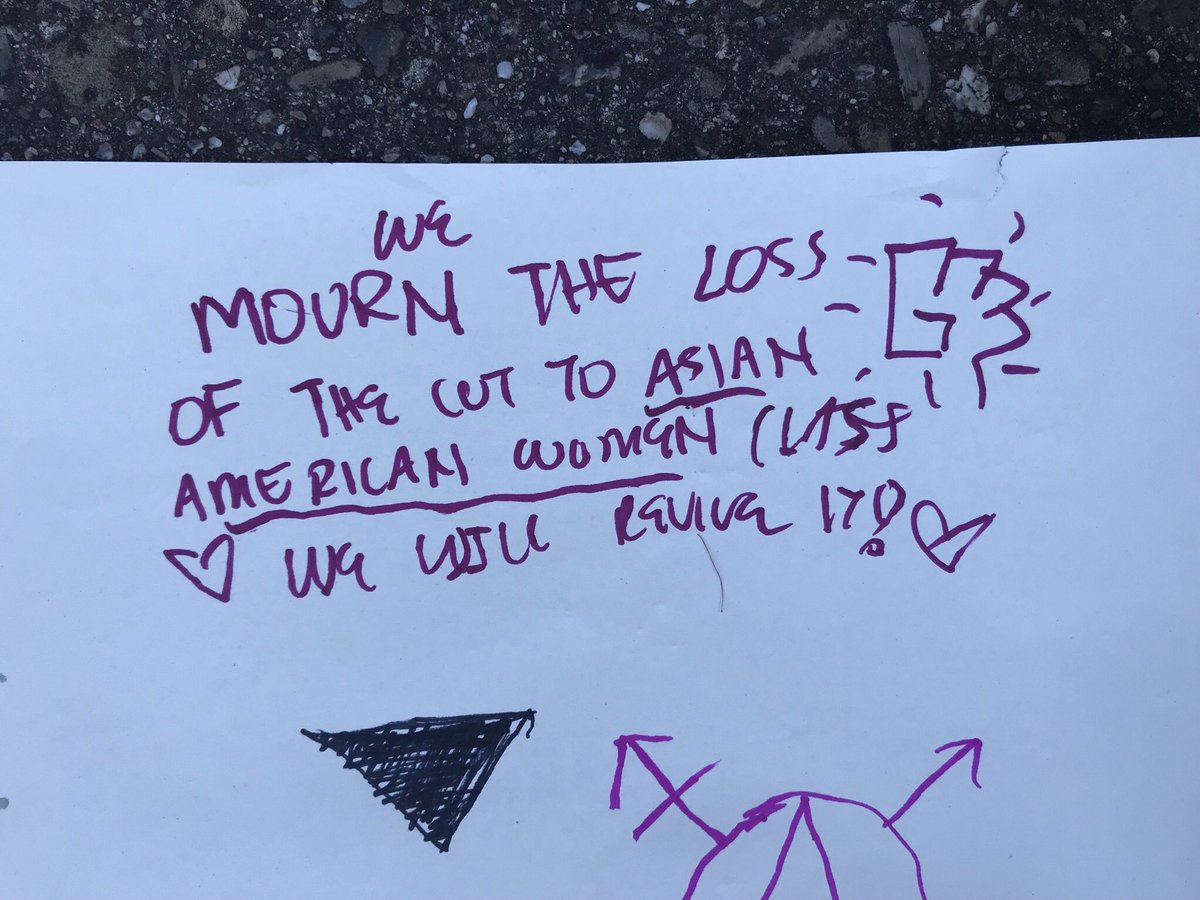 WE
MOURN THE LOSS
OF THE CUT TO ASIAN
AMERICAN WOMEN CLASS
WE WILL REVIVE IT!